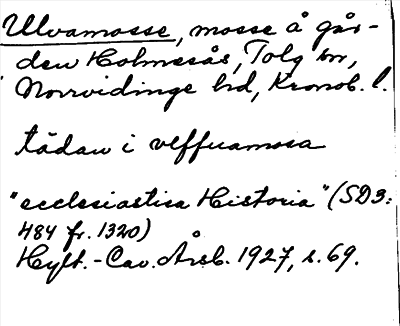 Ulvamosse, mosse å går-
den Holmsås, Tolg sn,
Norrvidinge hd, Kronob. l.
tädan i vlffuamosa
"ecclesiastica Historia" (SD 3:
484 fr. 1320)
Hylt.-Cav. Årsb. 1927, s. 69.